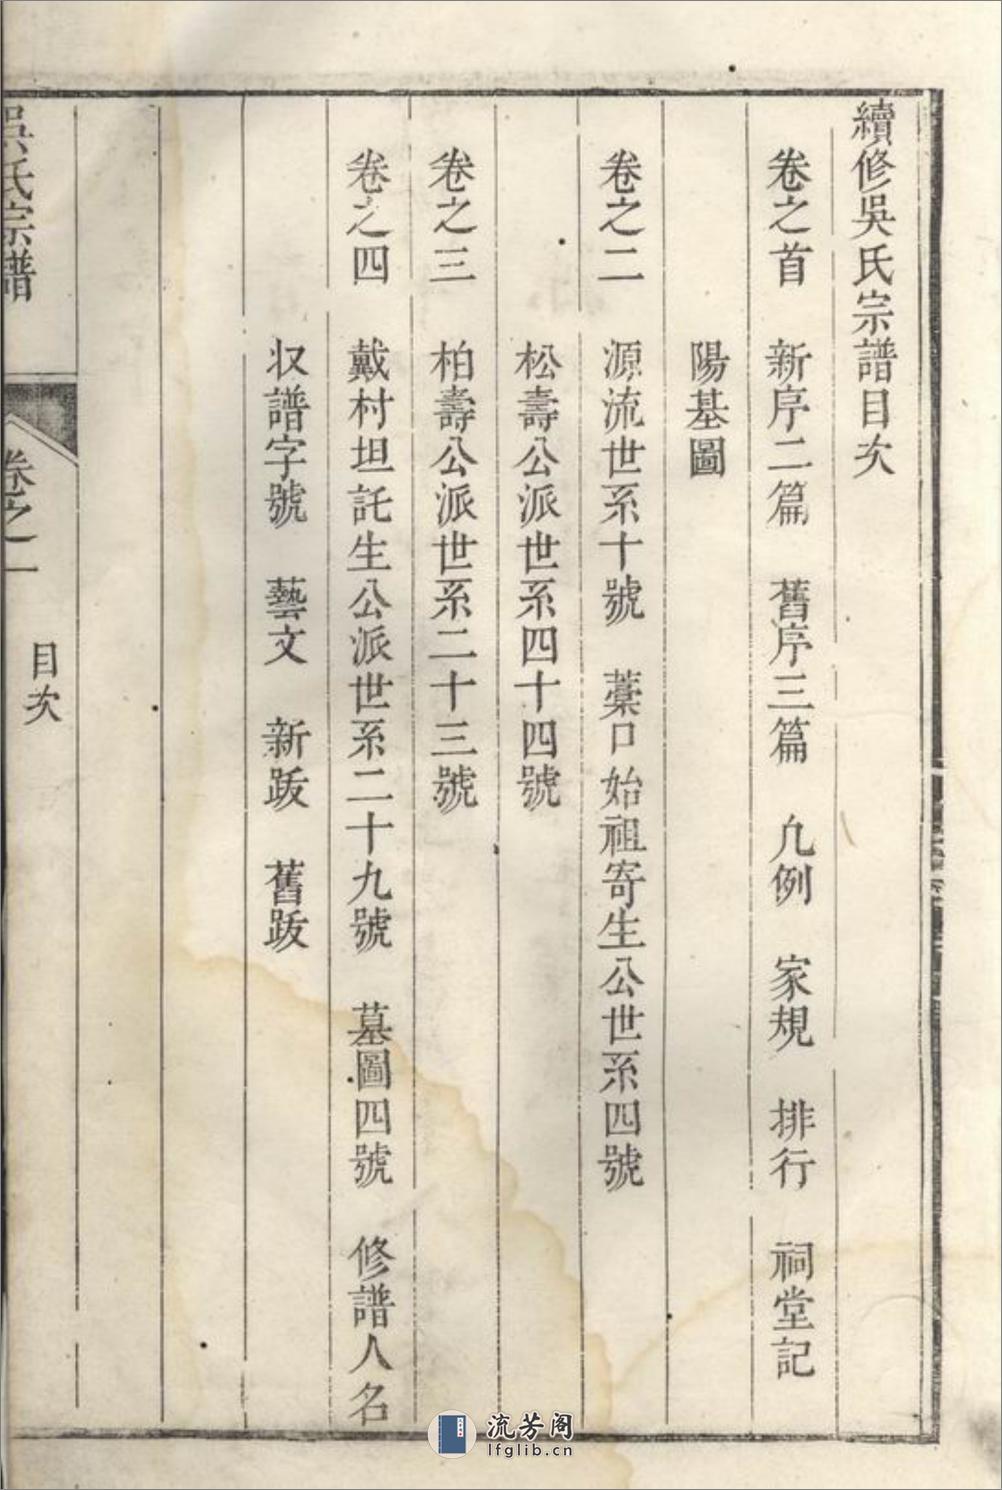 續修吳氏宗譜目次
卷之首 新序二篇 舊序三篇 凢例 家規 排行 祠堂記
陽基圖
卷之二 源流世系十號 藁口始祖寄生公世系四號
松壽公派世系四十四號
卷之三 柏壽公派世系二十三號
卷之四 戴村坦託生公派世系二十九號 墓圖四號 修譜人名
収譜字號 藝文 新跋 舊跋
吳氏宗譜 卷之一 目次
流芳阁
lfglib.cn